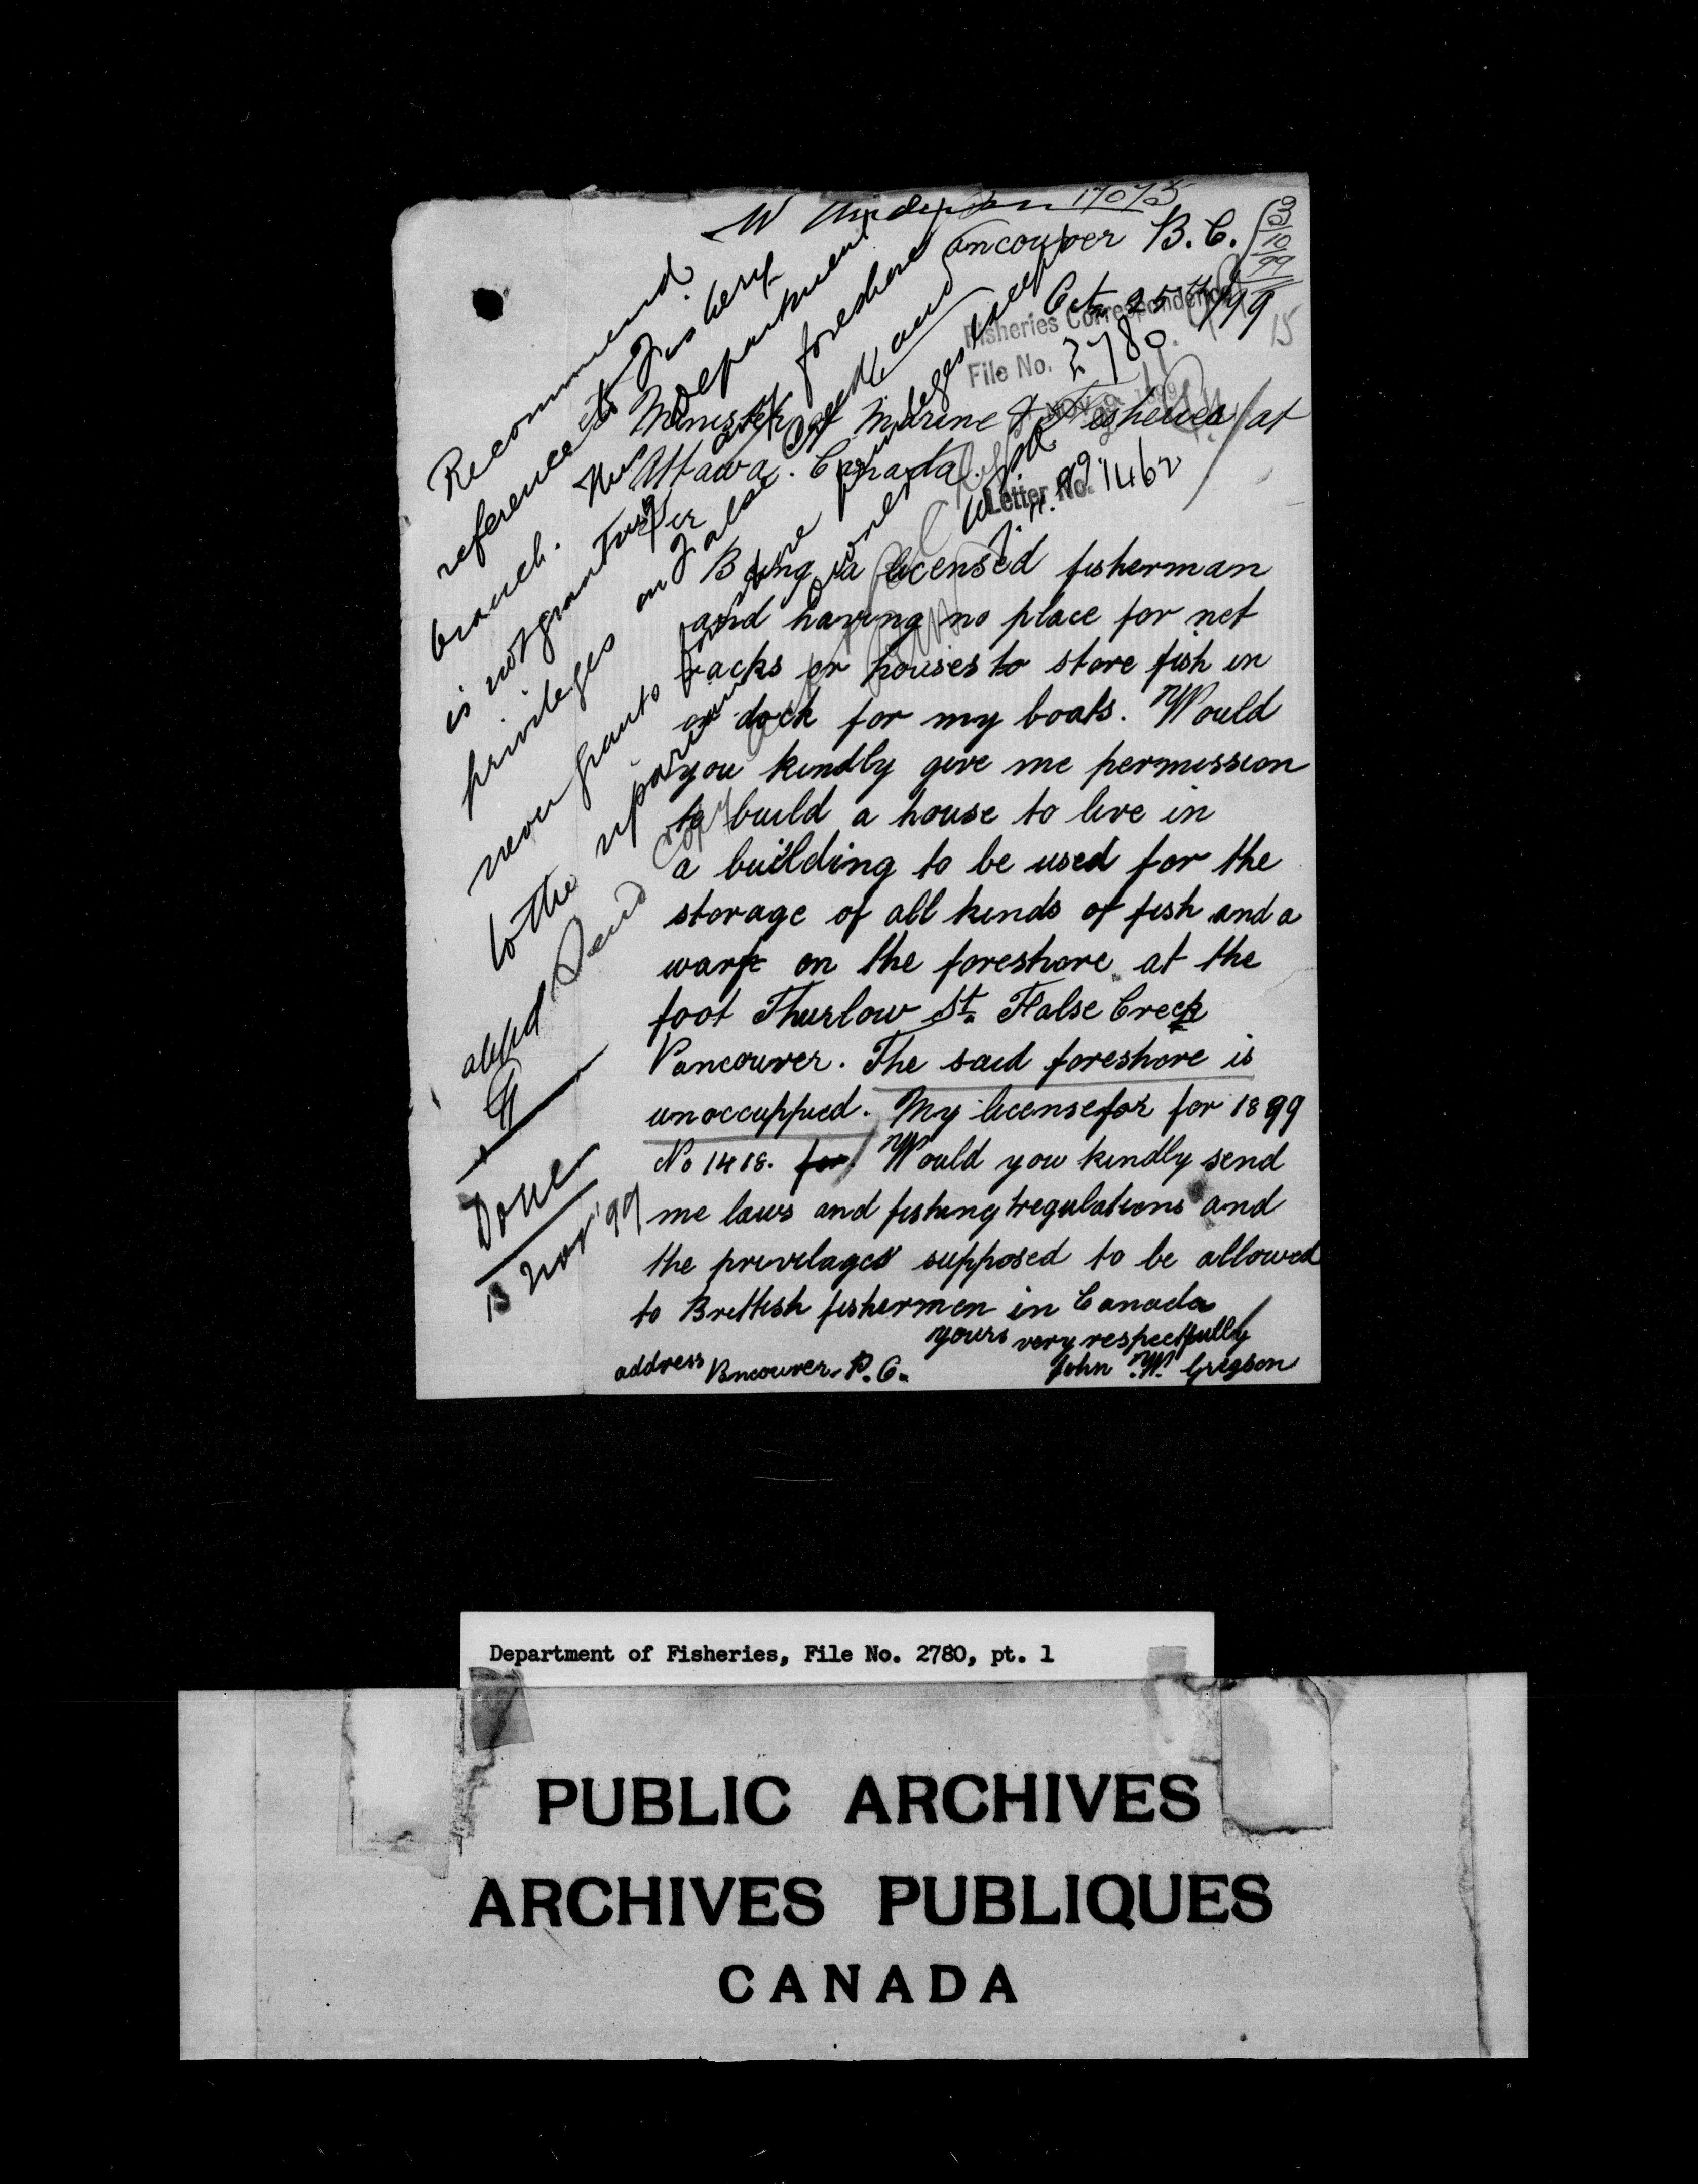 W Anderson 17075
Vancouver B.C.
Oct 25th/99
15
Fisheries Correspondence
File No. 2780
Minister of Marine & Fisheries/at
Ottawa. Canada.
Letter No. 1462
Sir
Being a licensed fisherman
and having no place for net
racks or houses to store fish in
or dock for my boats. Would
you kindly give me permission
to build a house to live in
a building to be used for the
storage of all kinds of fish and a
warf on the foreshore at the
foot Thurlow St. False Creek
Vancouver. The said foreshore is
unoccuppied. My license for for 1899
No 1418. for Would you kindly send
me laws and fishing regulations and
the privilages supposed to be allowed
to Brettish fishermen in Canada
yours very respectfully
address Vancouver. B.C. John W. Gregson
Recommend
reference to Fishery
branch. This Department
is not granting any foreshore
privileges on False Creek and
never grants foreshore privileges except
to the riparian owner
Send copy
Done
13 Nov '99
Department of Fisheries, File No. 2780, pt. 1
PUBLIC ARCHIVES
ARCHIVES PUBLIQUES
CANADA